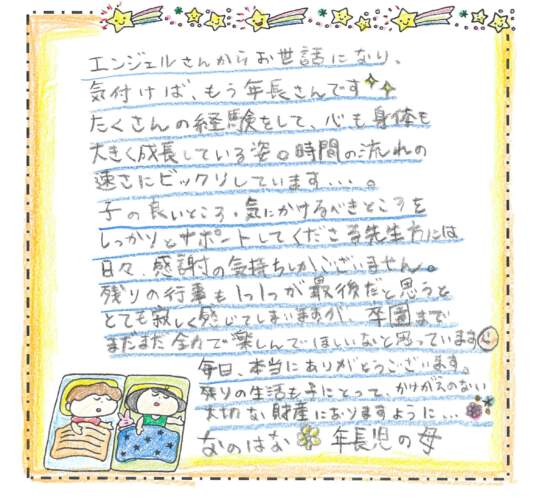 エンジェルさんからお世話になり、
気付けば、もう年長さんです
たくさんの経験をして、心も身体も
大きく成長している姿。時間の流れの
速さにビックリしています…。
子の良いところ・気にかけるべきところを
しっかりとサポートしてくださる先生方には
日々、感謝の気持ちしかございません。
残りの行事も1つ1つが最後だと思うと
とても寂しく感じてしまいますが、卒園まで
まだまだ全力で楽しんでほしいなと思っています
毎日、本当にありがとうございます。
残りの生活も子にとって、かけがえのない
大切な財産になりますように…
なのはな 年長児の母